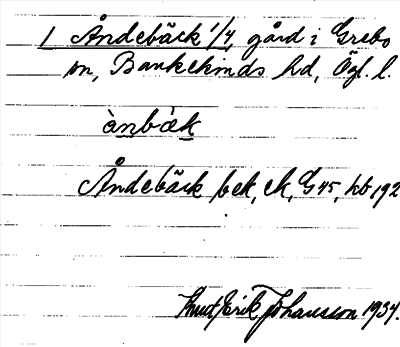 1 Åndebäck 1/4, gård i Grebo
sn, Bankekinds hd, Ögl. l.
ànbæ̀k
Åndebäck bek, EK, G 45, hb 192
Knut Erik Johansson 1934.